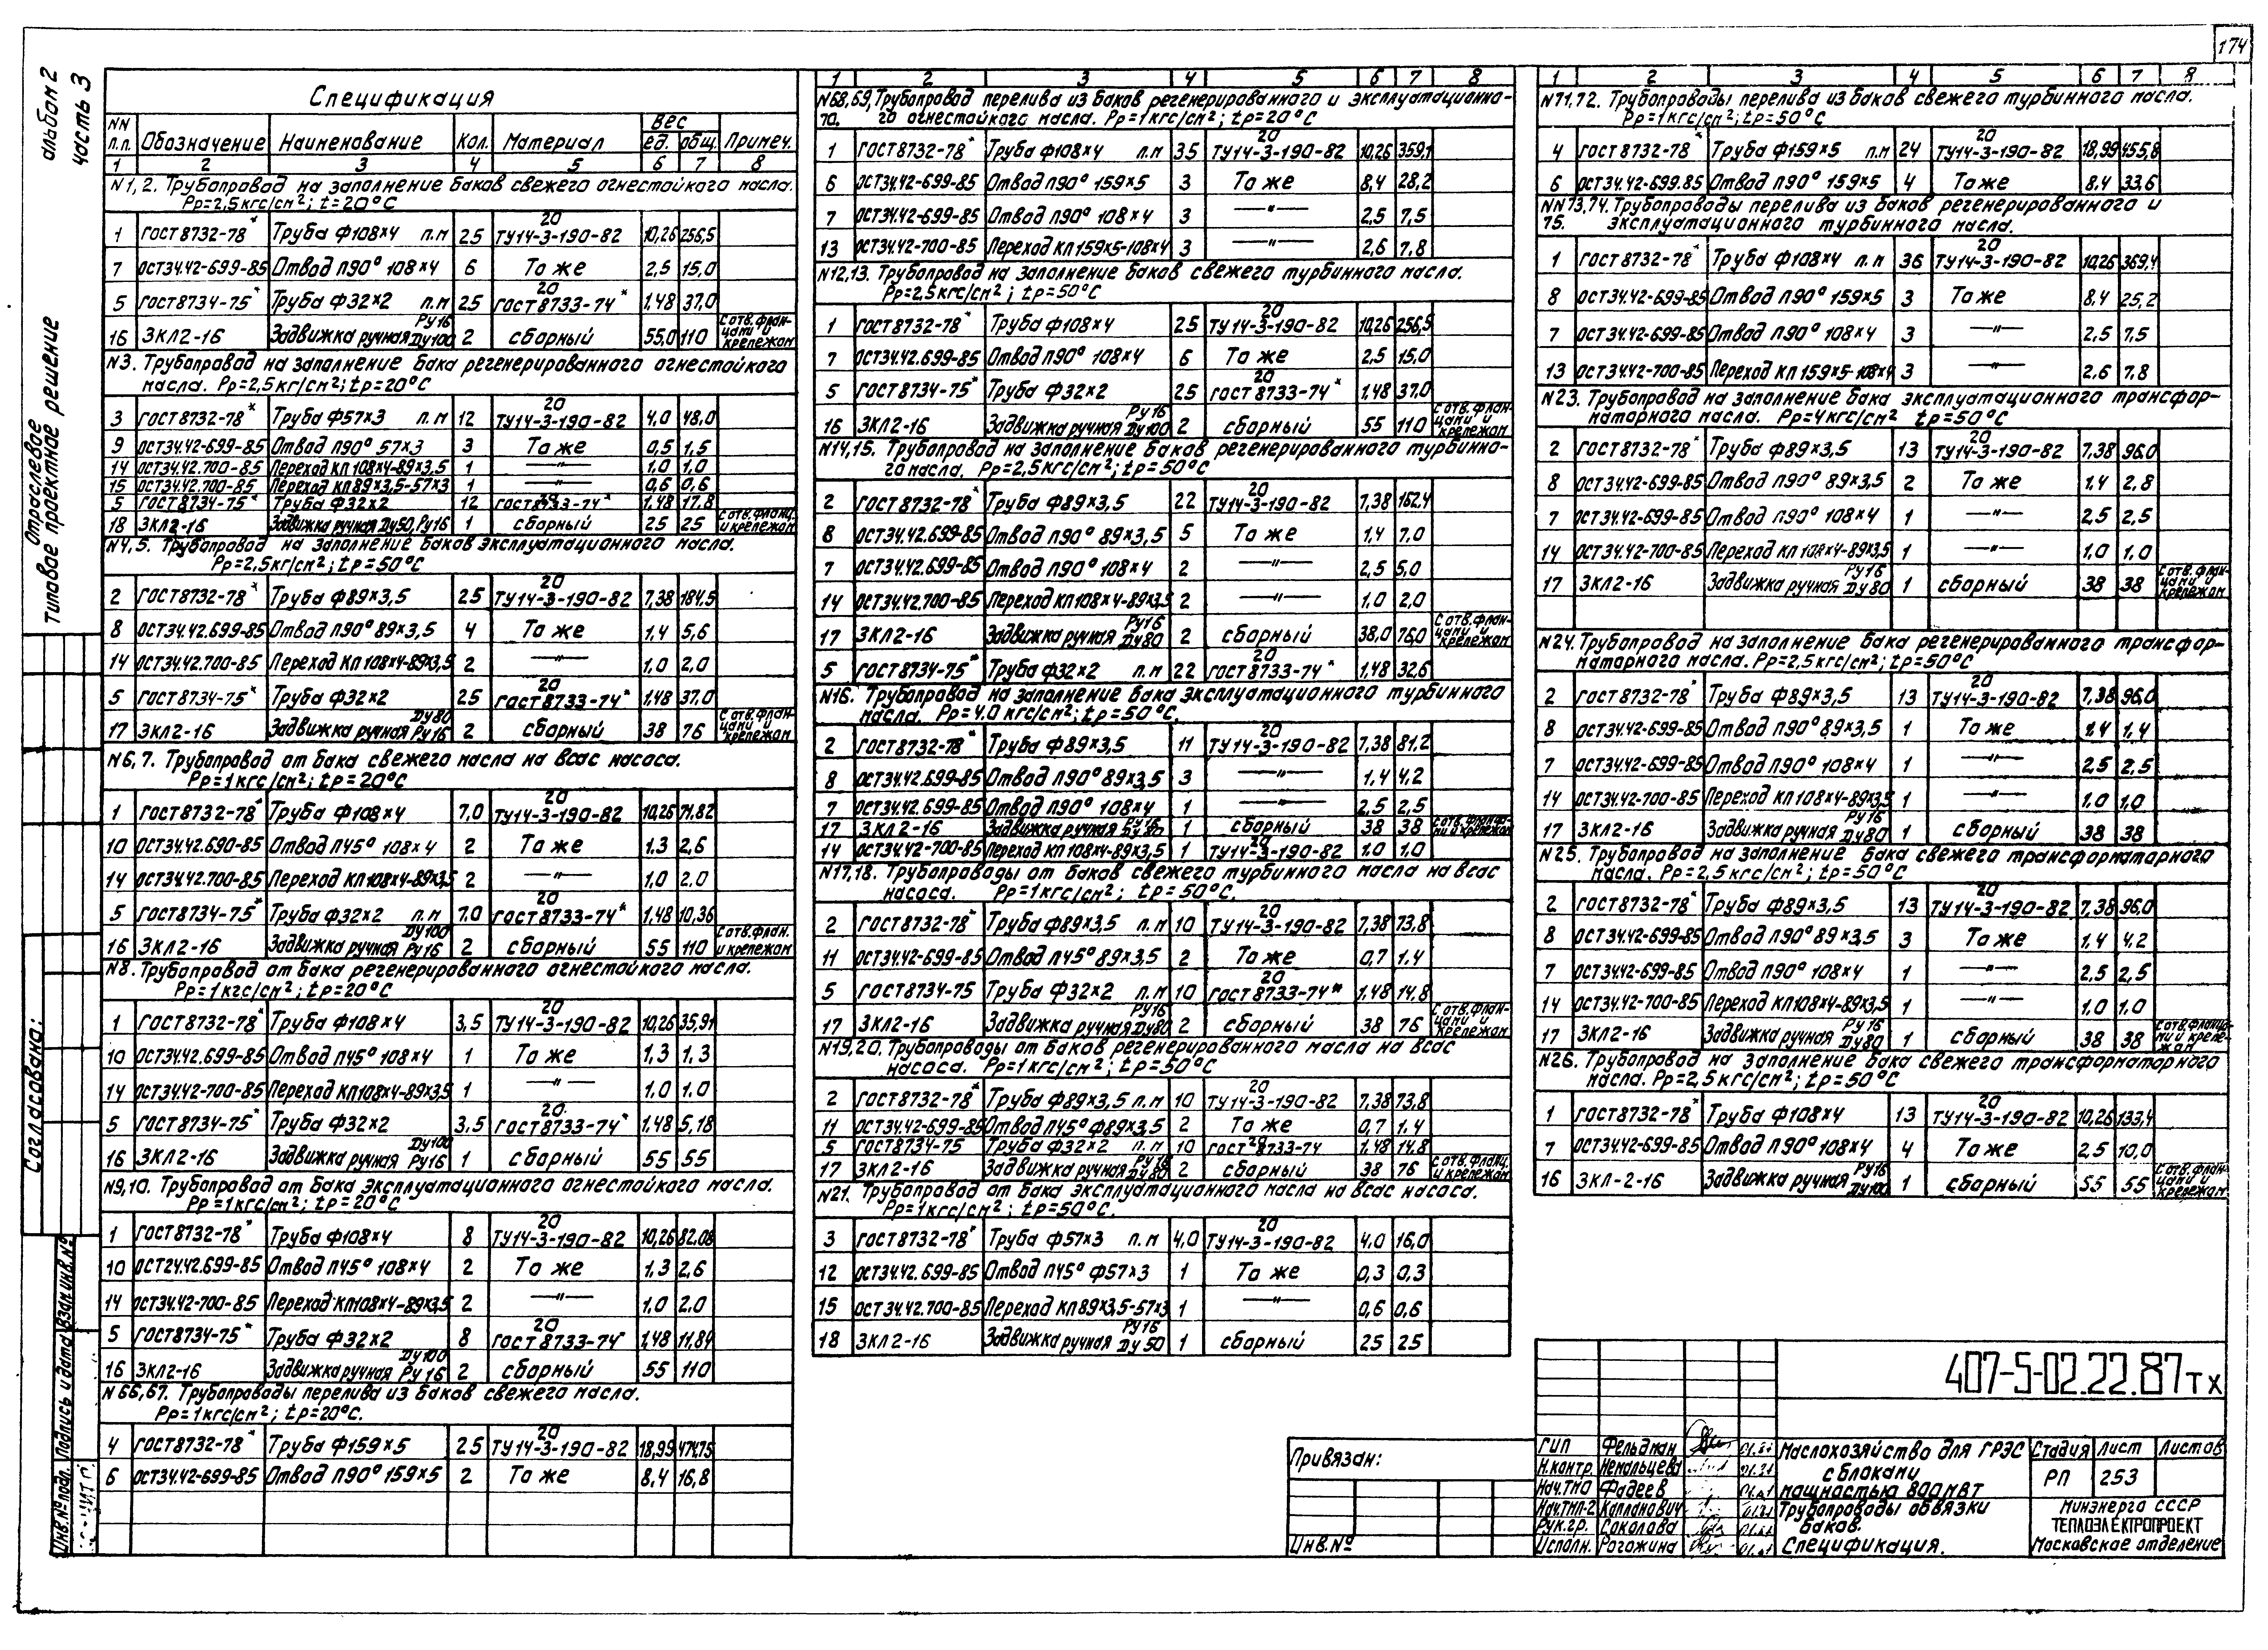 174
альбом 2
часть 3
Отраслевое
типовое проектное решение
Согласовано:
Инв.№ подл. Подпись и дата Взам.инв.№
Спецификация
NN п.п. Обозначение Наименование Кол. Материал Вес ед. общ. Примеч.
1 2 3 4 5 6 7 8
N1,2. Трубопровод на заполнение баков свежего огнестойкого масла.
Рр=2,5кгс/см²; t=20°С
1 ГОСТ8732-78* Труба ф108×4 п.м 25 20 ТУ14-3-190-82 10,26 256,5
7 ОСТ34.42-699-85 Отвод П90° 108×4 6 То же 2,5 15,0
5 ГОСТ8734-75* Труба ф32×2 п.м 25 20 ГОСТ8733-74* 1,48 37,0
16 ЗКЛ2-16 Задвижка ручная Ру16 Ду100 2 сборный 55,0 110 С отв. фланцами и крепежом
N3. Трубопровод на заполнение бака регенерированного огнестойкого
масла. Рр=2,5кг/см²; tр=20°С
3 ГОСТ8732-78* Труба ф57×3 п.м 12 20 ТУ14-3-190-82 4,0 48,0
9 ОСТ34.42-699-85 Отвод П90° 57×3 3 То же 0,5 1,5
14 ОСТ34.42.700-85 Переход КП108×4-89×3,5 1 —"— 1,0 1,0
15 ОСТ34.42.700-85 Переход КП89×3,5-57×3 1 —"— 0,6 0,6
5 ГОСТ8734-75* Труба ф32×2 12 20 ГОСТ8733-74* 1,48 17,8
18 ЗКЛ2-16 Задвижка ручная Ду50, Ру16 1 сборный 25 25 С отв. фланц. и крепежом
N4,5. Трубопровод на заполнение баков эксплуатационного масла.
Рр=2,5кг/см²; tр=50°С
2 ГОСТ8732-78* Труба ф89×3,5 25 20 ТУ14-3-190-82 7,38 184,5
8 ОСТ34.42.699-85 Отвод П90° 89×3,5 4 То же 1,4 5,6
14 ОСТ34.42.700-85 Переход КП108×4-89×3,5 2 —"— 1,0 2,0
5 ГОСТ8734-75* Труба ф32×2 25 20 ГОСТ8733-74* 1,48 37,0
17 ЗКЛ2-16 Задвижка ручная Ду80 Ру16 2 сборный 38 76 С отв. фланцами и крепежом
N6,7. Трубопровод от бака свежего масла на всас насоса.
Рр=1кгс/см²; tр=20°С
1 ГОСТ8732-78* Труба ф108×4 7,0 20 ТУ14-3-190-82 10,26 71,82
10 ОСТ34.42.690-85 Отвод П45° 108×4 2 То же 1,3 2,6
14 ОСТ34.42.700-85 Переход КП108×4-89×3,5 2 —"— 1,0 2,0
5 ГОСТ8734-75* Труба ф32×2 п.м 7,0 20 ГОСТ8733-74* 1,48 10,36
16 ЗКЛ2-16 Задвижка ручная Ду100 Ру16 2 сборный 55 110 С отв. флан. и крепежом
N8. Трубопровод от бака регенерированного огнестойкого масла.
Рр=1кгс/см²; tр=20°С
1 ГОСТ8732-78* Труба ф108×4 3,5 20 ТУ14-3-190-82 10,26 35,91
10 ОСТ34.42.699-85 Отвод П45° 108×4 1 То же 1,3 1,3
14 ОСТ34.42-700-85 Переход КП108×4-89×3,5 1 —"— 1,0 1,0
5 ГОСТ8734-75* Труба ф32×2 3,5 20 ГОСТ8733-74* 1,48 5,18
16 ЗКЛ2-16 Задвижка ручная Ду100 Ру16 1 сборный 55 55
N9,10. Трубопровод от бака эксплуатационного огнестойкого масла.
Рр=1кгс/см²; tр=20°С
1 ГОСТ8732-78* Труба ф108×4 8 20 ТУ14-3-190-82 10,26 82,08
10 ОСТ24.42.699-85 Отвод П45° 108×4 2 То же 1,3 2,6
14 ОСТ34.42-700-85 Переход КП108×4-89×3,5 2 —"— 1,0 2,0
5 ГОСТ8734-75* Труба ф32×2 8 20 ГОСТ8733-74* 1,48 11,84
16 ЗКЛ2-16 Задвижка ручная Ду100 Ру16 2 сборный 55 110
N66,67. Трубопроводы перелива из баков свежего масла.
Рр=1кгс/см²; tр=20°С.
4 ГОСТ8732-78* Труба ф159×5 25 20 ТУ14-3-190-82 18,99 474,75
6 ОСТ34.42-699-85 Отвод П90° 159×5 2 То же 8,4 16,8
1 2 3 4 5 6 7 8
N68,69, Трубопровод перелива из баков регенерированного и эксплуатационно-
70. го огнестойкого масла. Рр=1кгс/см²; tр=20°С
1 ГОСТ8732-78* Труба ф108×4 п.м 35 20 ТУ14-3-190-82 10,26 359,1
6 ОСТ34.42-699-85 Отвод П90° 159×5 3 То же 8,4 28,2
7 ОСТ34.42-699-85 Отвод П90° 108×4 3 —"— 2,5 7,5
13 ОСТ34.42-700-85 Переход КП159×5-108×4 3 —"— 2,6 7,8
N12,13. Трубопровод на заполнение баков свежего турбинного масла.
Рр=2,5кгс/см²; tр=50°С
1 ГОСТ8732-78* Труба ф108×4 25 20 ТУ14-3-190-82 10,26 256,5
7 ОСТ34.42.699-85 Отвод П90° 108×4 6 То же 2,5 15,0
5 ГОСТ8734-75* Труба ф32×2 25 20 ГОСТ8733-74* 1,48 37,0
16 ЗКЛ2-16 Задвижка ручная Ру16 Ду100 2 сборный 55 110 С отв. фланцами и крепежом
N14,15. Трубопровод на заполнение баков регенерированного турбинно-
го масла. Рр=2,5кгс/см²; tр=50°С
2 ГОСТ8732-78* Труба ф89×3,5 22 20 ТУ14-3-190-82 7,38 162,4
8 ОСТ34.42.699-85 Отвод П90° 89×3,5 5 То же 1,4 7,0
7 ОСТ34.42.699-85 Отвод П90° 108×4 2 —"— 2,5 5,0
14 ОСТ34.42.700-85 Переход КП108×4-89×3,5 2 1,0 2,0
17 ЗКЛ2-16 Задвижка ручная Ру16 Ду80 2 сборный 38,0 76,0 С отв. фланцами и крепежом
5 ГОСТ8734-75* Труба ф32×2 п.м 22 20 ГОСТ8733-74* 1,48 32,6
N16. Трубопровод на заполнение бака эксплуатационного турбинного
масла. Рр=4,0 кгс/см²; tр=50°С.
2 ГОСТ8732-78* Труба ф89×3,5 11 20 ТУ14-3-190-82 7,38 81,2
8 ОСТ34.42.699-85 Отвод П90° 89×3,5 3 —"— 1,4 4,2
7 ОСТ34.42.699-85 Отвод П90° 108×4 1 —"— 2,5 2,5
17 ЗКЛ2-16 Задвижка ручная Ру16 Ду80 1 сборный 38 38 С отв. фланцами и крепежом
14 ОСТ34.42-700-85 Переход КП108×4-89×3,5 1 20 ТУ14-3-190-82 1,0 1,0
N17,18. Трубопроводы от баков свежего турбинного масла на всас
насоса. Рр=1кгс/см²; tр=50°С.
2 ГОСТ8732-78* Труба ф89×3,5 п.м 10 20 ТУ14-3-190-82 7,38 73,8
11 ОСТ34.42-699-85 Отвод П45° 89×3,5 2 То же 0,7 1,4
5 ГОСТ8734-75 Труба ф32×2 п.м 10 20 ГОСТ8733-74* 1,48 14,8
17 ЗКЛ2-16 Задвижка ручная Ру16 Ду80 2 сборный 38 76 С отв. фланцами и крепежом
N19,20. Трубопроводы от баков регенерированного масла на всас
насоса. Рр=1кгс/см²; tр=50°С
2 ГОСТ8732-78* Труба ф89×3,5 п.м 10 20 ТУ14-3-190-82 7,38 73,8
11 ОСТ34.42-699-85 Отвод П45° ф89×3,5 2 То же 0,7 1,4
5 ГОСТ8734-75 Труба ф32×2 п.м 10 20 ГОСТ8733-74 1,48 14,8
17 ЗКЛ2-16 Задвижка ручная Ру16 Ду80 2 сборный 38 76 С отв. фланц. и крепежом
N21. Трубопровод от бака эксплуатационного масла на всас насоса.
Рр=1кгс/см²; tр=50°С.
3 ГОСТ8732-78* Труба ф57×3 п.м 4,0 20 ТУ14-3-190-82 4,0 16,0
12 ОСТ34.42.699-85 Отвод П45° ф57×3 1 То же 0,3 0,3
15 ОСТ34.42.700-85 Переход КП89×3,5-57×3 1 —"— 0,6 0,6
18 ЗКЛ2-16 Задвижка ручная Ру16 Ду50 1 сборный 25 25
1 2 3 4 5 6 7 8
N71,72. Трубопроводы перелива из баков свежего турбинного масла.
Рр=1кгс/см²; tр=50°С
4 ГОСТ8732-78* Труба ф159×5 п.м 24 20 ТУ14-3-190-82 18,99 455,8
6 ОСТ34.42-699.85 Отвод П90° 159×5 4 То же 8,4 33,6
NN73,74. Трубопроводы перелива из баков регенерированного и
75. эксплуатационного турбинного масла.
1 ГОСТ8732-78* Труба ф108×4 п.м 36 20 ТУ14-3-190-82 10,26 369,4
8 ОСТ34.42-699-85 Отвод П90° 159×5 3 То же 8,4 25,2
7 ОСТ34.42-699-85 Отвод П90° 108×4 3 —"— 2,5 7,5
13 ОСТ34.42-700-85 Переход КП159×5-108×4 3 —"— 2,6 7,8
N23. Трубопровод на заполнение бака эксплуатационного трансфор-
маторного масла. Рр=4кгс/см² tр=50°С
2 ГОСТ8732-78* Труба ф89×3,5 13 20 ТУ14-3-190-82 7,38 96,0
8 ОСТ34.42-699-85 Отвод П90° 89×3,5 2 То же 1,4 2,8
7 ОСТ34.42-699-85 Отвод П90° 108×4 1 —"— 2,5 2,5
14 ОСТ34.42-700-85 Переход КП108×4-89×3,5 1 —"— 1,0 1,0
17 ЗКЛ2-16 Задвижка ручная Ру16 Ду80 1 сборный 38 38 С отв. фланцами и крепежом
N24. Трубопровод на заполнение бака регенерированного трансфор-
маторного масла. Рр=2,5кгс/см²; tр=50°С
2 ГОСТ8732-78* Труба ф89×3,5 13 20 ТУ14-3-190-82 7,38 96,0
8 ОСТ34.42-699-85 Отвод П90° 89×3,5 1 То же 1,4 1,4
7 ОСТ34.42-699-85 Отвод П90° 108×4 1 —"— 2,5 2,5
14 ОСТ34.42-700-85 Переход КП108×4-89×3,5 1 —"— 1,0 1,0
17 ЗКЛ2-16 Задвижка ручная Ру16 Ду80 1 сборный 38 38
N25. Трубопровод на заполнение бака свежего трансформаторного
масла. Рр=2,5кгс/см²; tр=50°С
2 ГОСТ8732-78* Труба ф89×3,5 13 20 ТУ14-3-190-82 7,38 96,0
8 ОСТ34.42-699-85 Отвод П90° 89×3,5 3 То же 1,4 4,2
7 ОСТ34.42-699-85 Отвод П90° 108×4 1 —"— 2,5 2,5
14 ОСТ34.42-700-85 Переход КП108×4-89×3,5 1 —"— 1,0 1,0
17 ЗКЛ2-16 Задвижка ручная Ру16 Ду80 1 сборный 38 38 С отв. фланцами и крепежом
N26. Трубопровод на заполнение бака свежего трансформаторного
масла. Рр=2,5кгс/см²; tр=50°С
1 ГОСТ8732-78* Труба ф108×4 13 20 ТУ14-3-190-82 10,26 133,4
7 ОСТ34.42-699-85 Отвод П90° 108×4 4 То же 2,5 10,0
16 ЗКЛ-2-16 Задвижка ручная Ру16 Ду100 1 сборный 55 55 С отв. фланцами и крепежом
Привязан:
Инв.№
407-5-02.22.87 ТХ
ГИП Фельдман
Н.контр. Немальцева
Нач.ТМО Фадеев
Нач.ТМП-2 Капланович
Рук.гр. Соколова
Исполн. Рогожина
Маслохозяйство для ГРЭС
с блоками
мощностью 800 МВт
Трубопроводы обвязки
баков.
Спецификация.
Стадия Лист Листов
РП 253
Минэнерго СССР
ТЕПЛОЭЛЕКТРОПРОЕКТ
Московское отделение